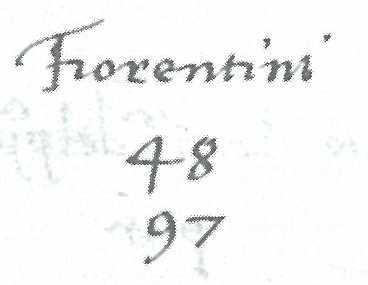 Fiorentini
48
97